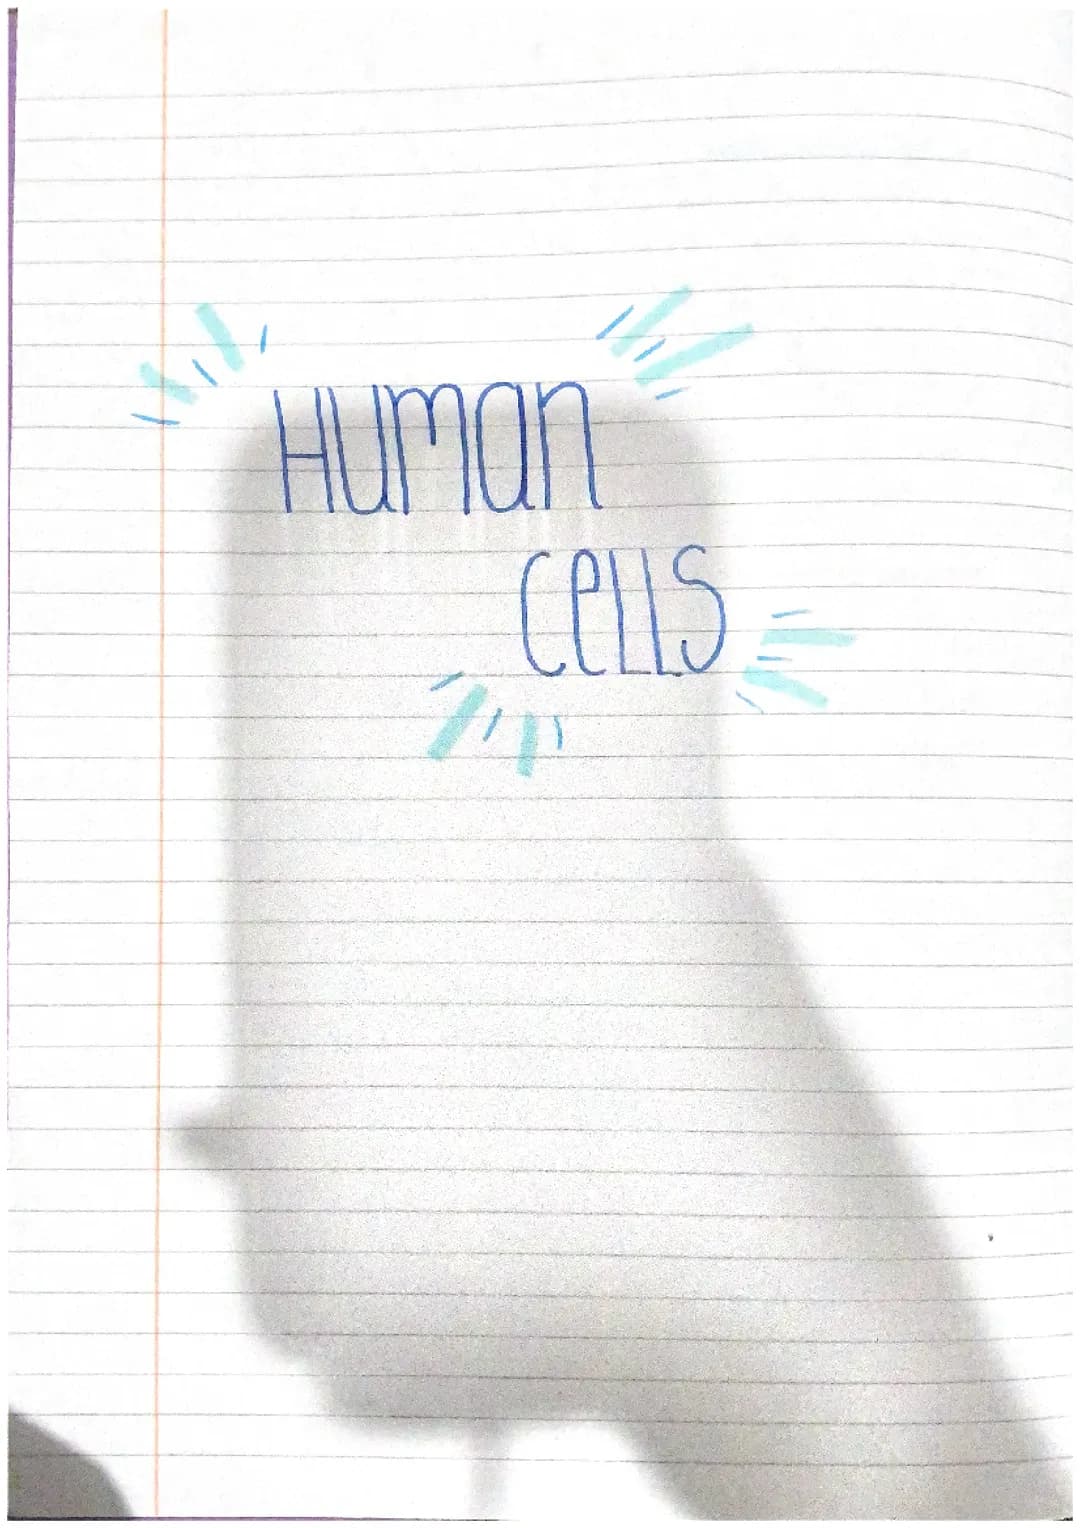 Human
cells